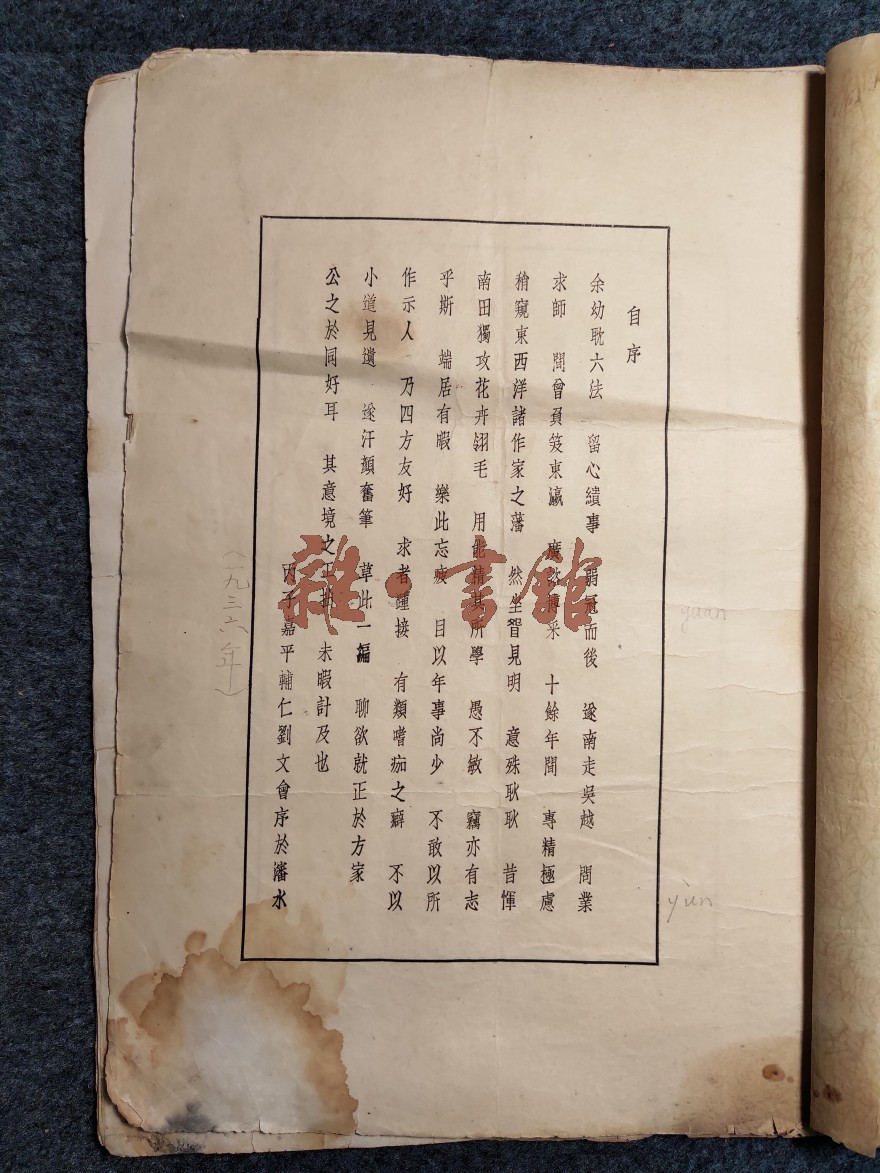 自序
余幼耽六法 留心繢事 弱冠而後 遂南走吳越 問業
求師 間曾負笈東瀛 廣諮博采 十餘年間 專精極慮
稍窺東西洋諸作家之藩 然坐眢見明 意殊耿耿 昔惲
南田獨攻花卉翎毛 用能精其所學 愚不敏 竊亦有志
乎斯 端居有暇 樂此忘疲 目以年事尚少 不敢以所
作示人 乃四方友好 求者踵接 有類嗜痂之癖 不以
小道見遺 遂汗顏奮筆 草此一編 聊欲就正於方家
公之於同好耳 其意境之工拙 未暇計及也
丙子嘉平輔仁劉文會序於瀋水
(一九三六年)
yuan
yùn
雜·書館